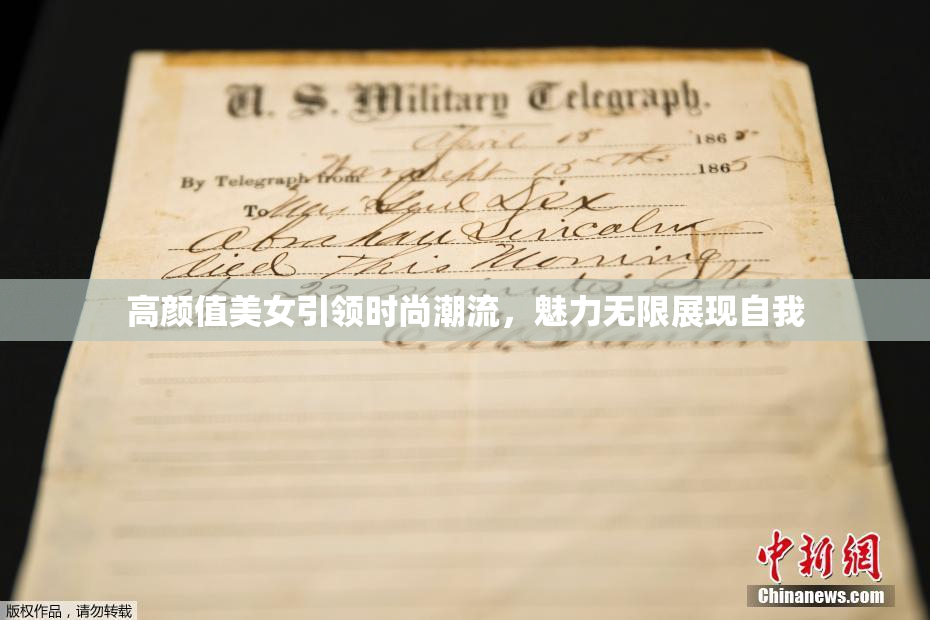 U. S. Military Telegraph.
April 15 1865
By Telegraph from War Dept 15th 1865
To Maj Genl Dix
Abraham Lincoln
died This Morning
at 22 minutes after
高颜值美女引领时尚潮流，魅力无限展现自我
E. M. Stanton
中新网
Chinanews.com
版权作品，请勿转载